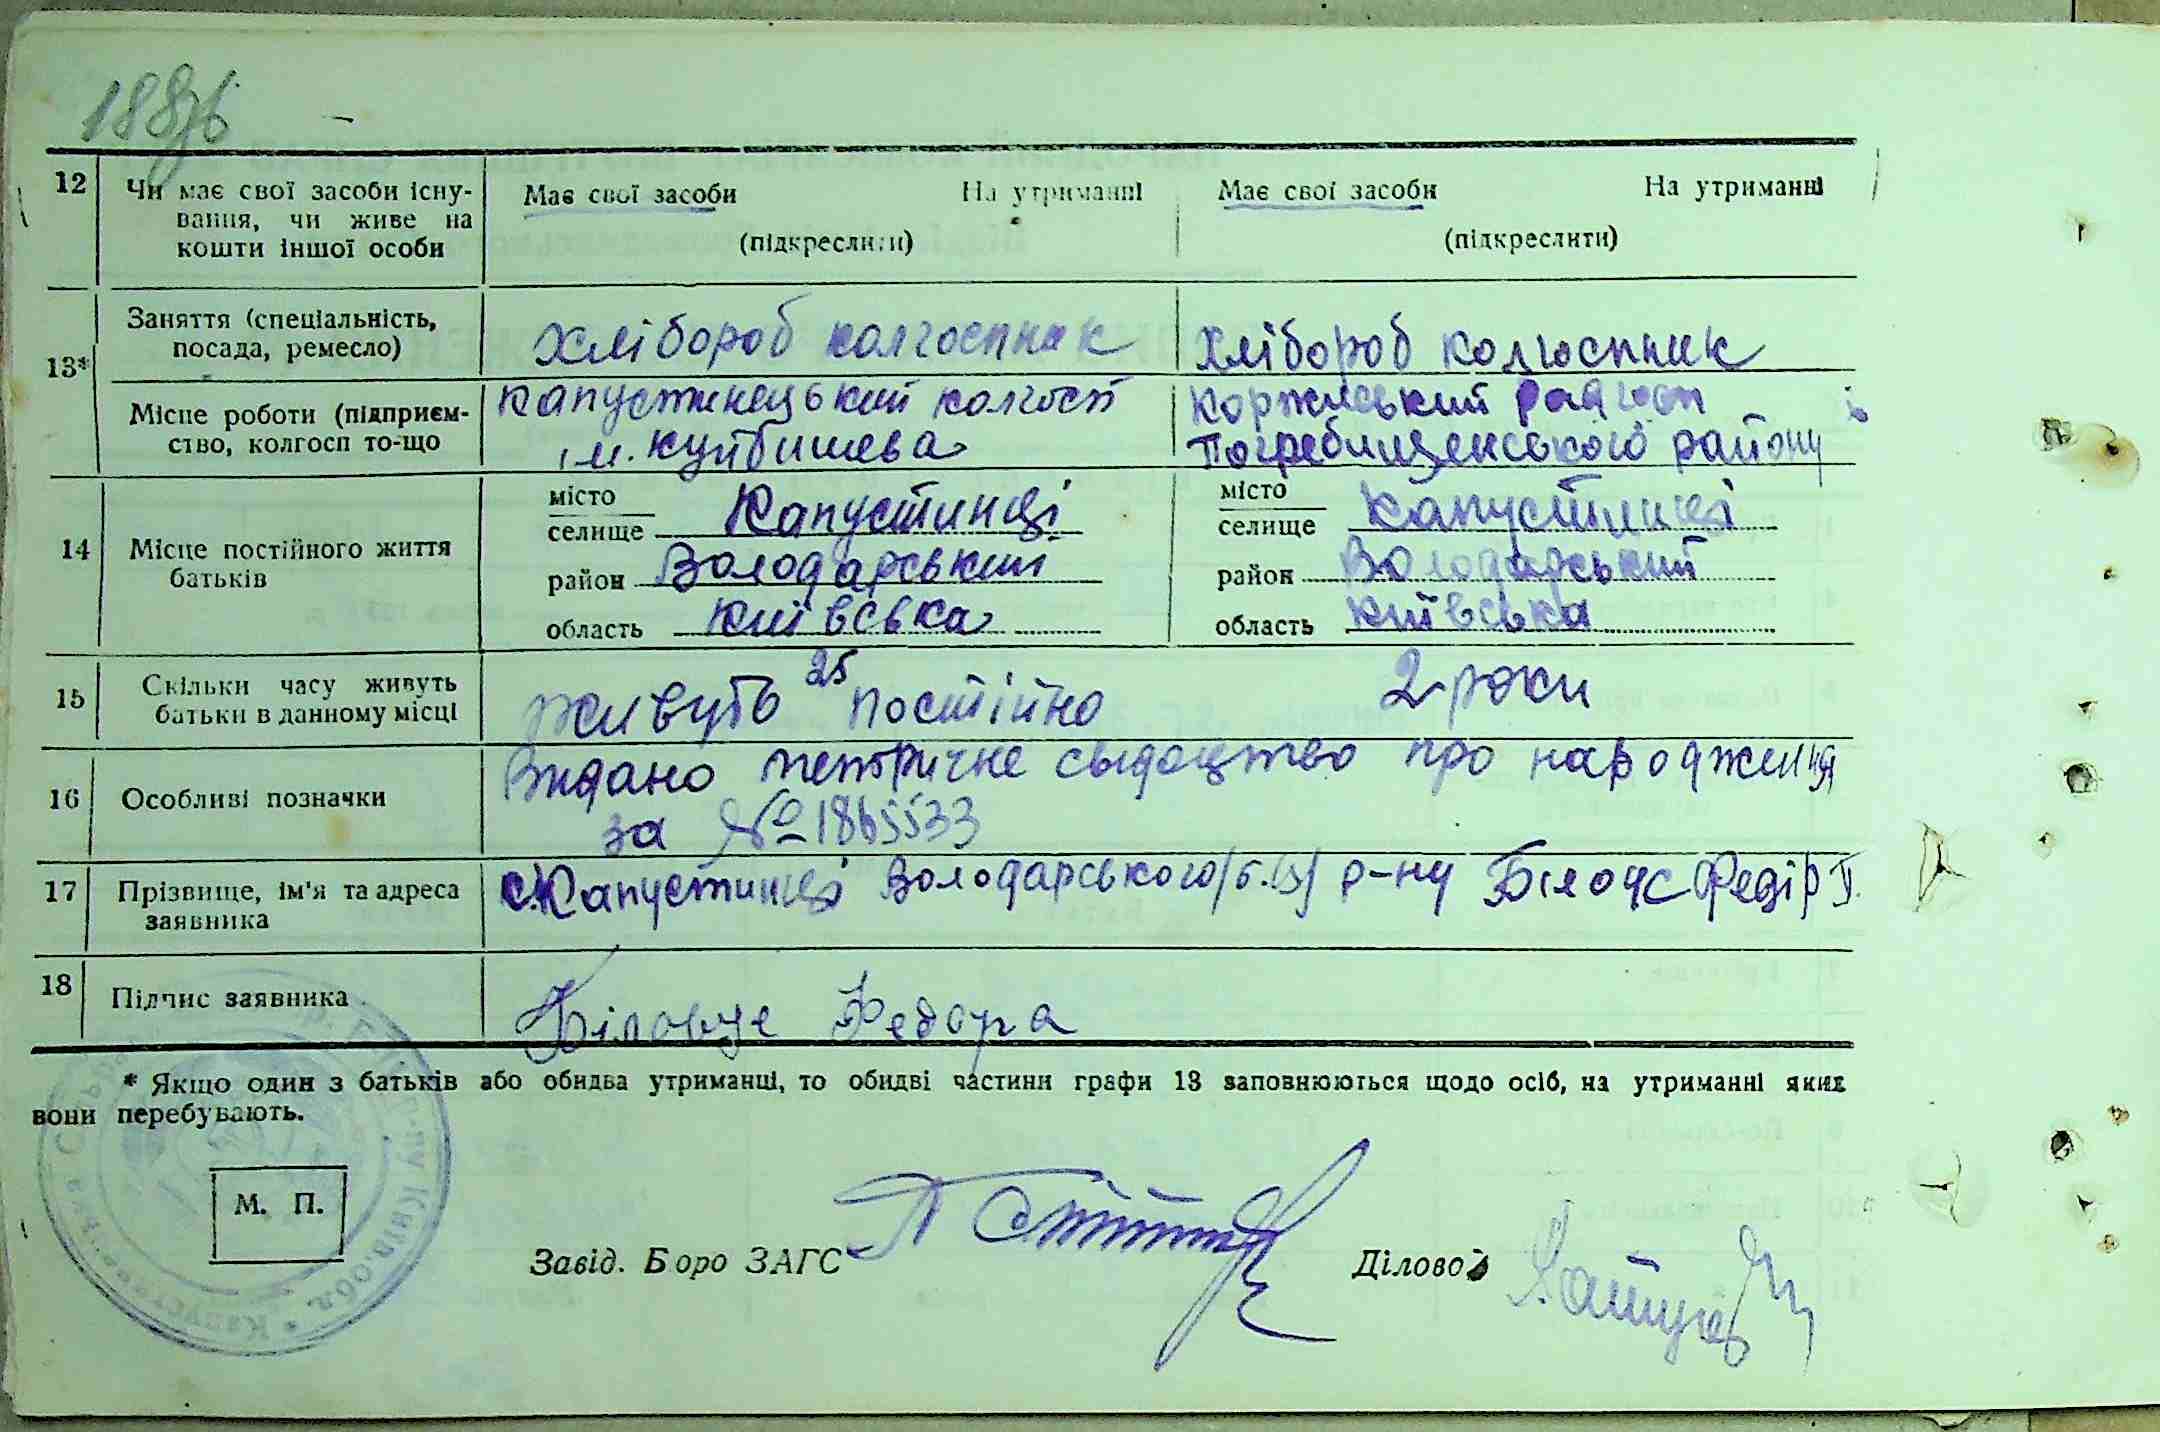 12 Чи має свої засоби існу- Має свої засоби На утриманні Має свої засоби На утриманні
вання, чи живе на (підкреслити) (підкреслити)
кошти іншої особи
13* Заняття (спеціальність, Хлібороб колгоспник Хлібороб колгоспник
посада, ремесло)
Місце роботи (підприєм- Капустинецький колгосп Коржиський радгосп
ство, колгосп то-що ім. Куйбишева Погребищенського району
14 Місце постійного життя батьків
місто Капустинці місто Капустинці
селище селище
район Володарський район Володарський
область Київська область Київська
15 Скільки часу живуть Живуть 25 постійно 2 роки
батьки в данному місці
16 Особливі позначки Видано свідоцтво про народження
за № 1865533
17 Прізвище, ім'я та адреса с. Капустинці Володарського /б.ц/ р-ну Білоус Федір П.
заявника
18 Підпис заявника Біловус Федора
* Якщо один з батьків або обидва утриманці, то обидві частини графи 13 заповнюються щодо осіб, на утриманні яких
вони перебувають.
М. П.
Завід. Бюро ЗАГС Діловод